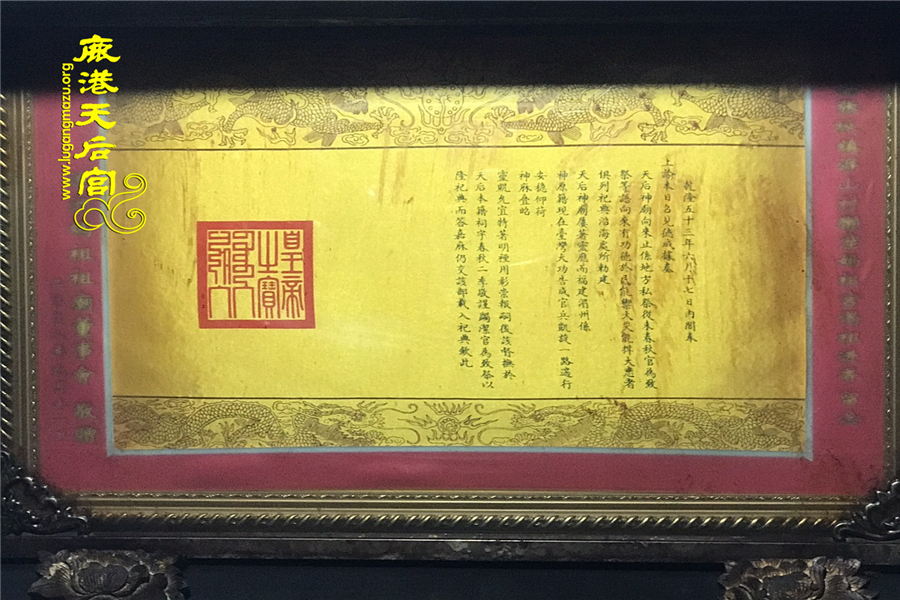 鹿港天后宮
www.lugangmazu.org
乾隆五十三年六月十七日內閣奉
上諭
天后神廟向來止係地方私祭從未春秋官為致
祭等語向來有功德於民能禦大災能捍大患者
俱列祀典沿海處所勅建
天后神廟屢著靈應而福建湄州係
神原籍現在臺灣大功告成官兵凱旋一路遄行
安穩仰荷
神庥疊昭
靈貺允宜特著明禋用彰崇報嗣後該督撫於
天后本籍祠宇春秋二季敬謹蠲潔官為致祭以
隆祀典而答嘉庥仍交該部載入祀典欽此
皇帝之寶
祖祖廟董事會 敬贈